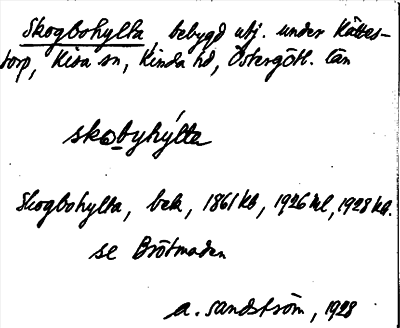 Skogbohylta, bebygd utj. under Kättes-
torp, Kisa sn, Kinda hd, Östergötl. län
skobyhýlta
Skogbohylta, bek, 1861 kb, 1926 ml, 1928 kd.
se Brötmaden
A. Sandström, 1928